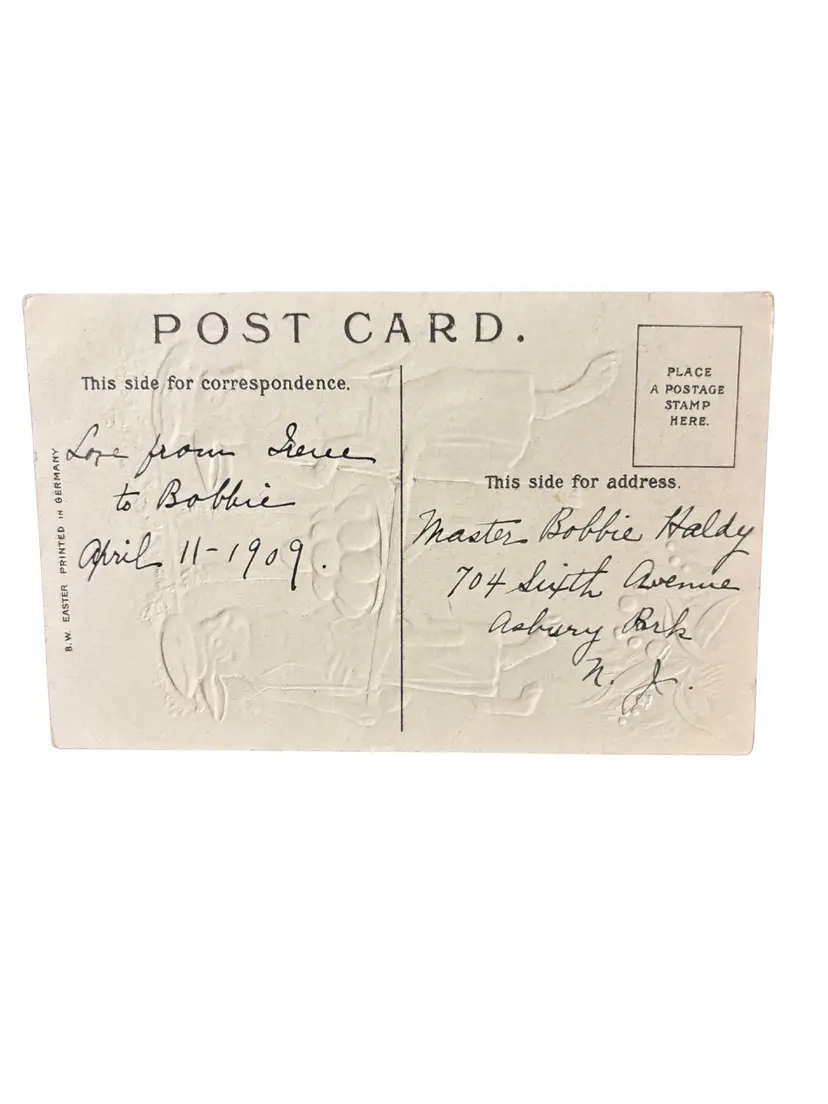 POST CARD.
This side for correspondence.
Love from Irene
to Bobbie
April 11-1909.
B.W. EASTER PRINTED IN GERMANY
PLACE
A POSTAGE
STAMP
HERE.
This side for address.
Master Bobbie Haldy
704 Sixth Avenue
Asbury Park
N. J.